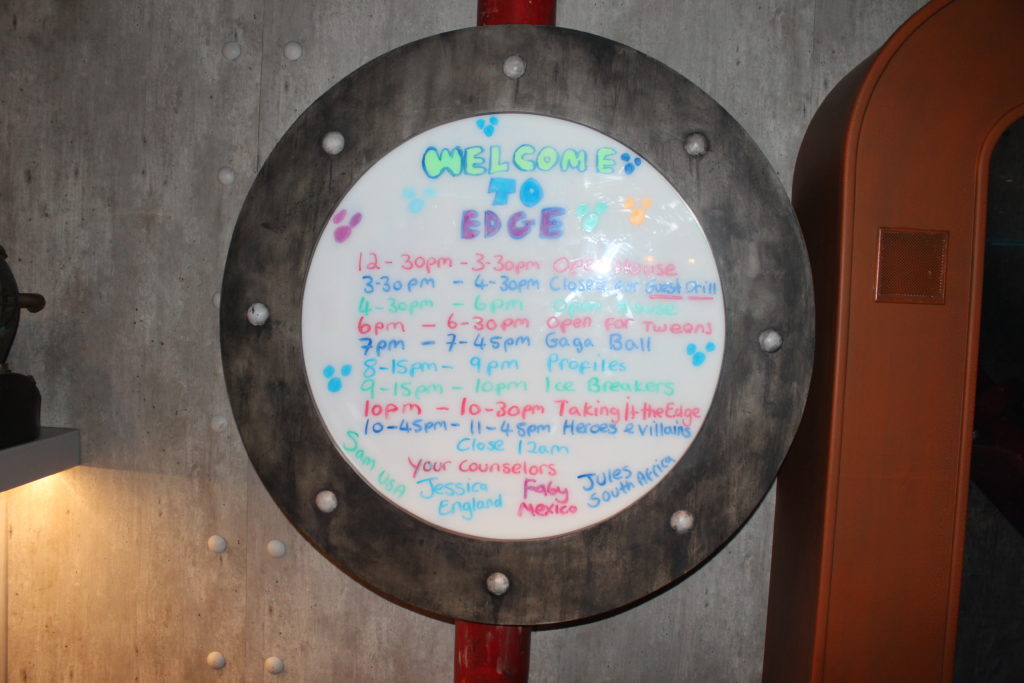 WELCOME
TO
EDGE
12-30pm - 3-30pm Open House
3-30pm - 4-30pm Closed for Guest Drill
4-30pm - 6pm Open House
6pm - 6-30pm Open for Tweens
7pm - 7-45pm Gaga Ball
8-15pm - 9pm Profiles
9-15pm - 10pm Ice Breakers
10pm - 10-30pm Taking it the Edge
10-45pm - 11-45pm Heroes & Villains
Close 12am
Your Counselors
Sam USA
Jessica England
Faby Mexico
Jules South Africa